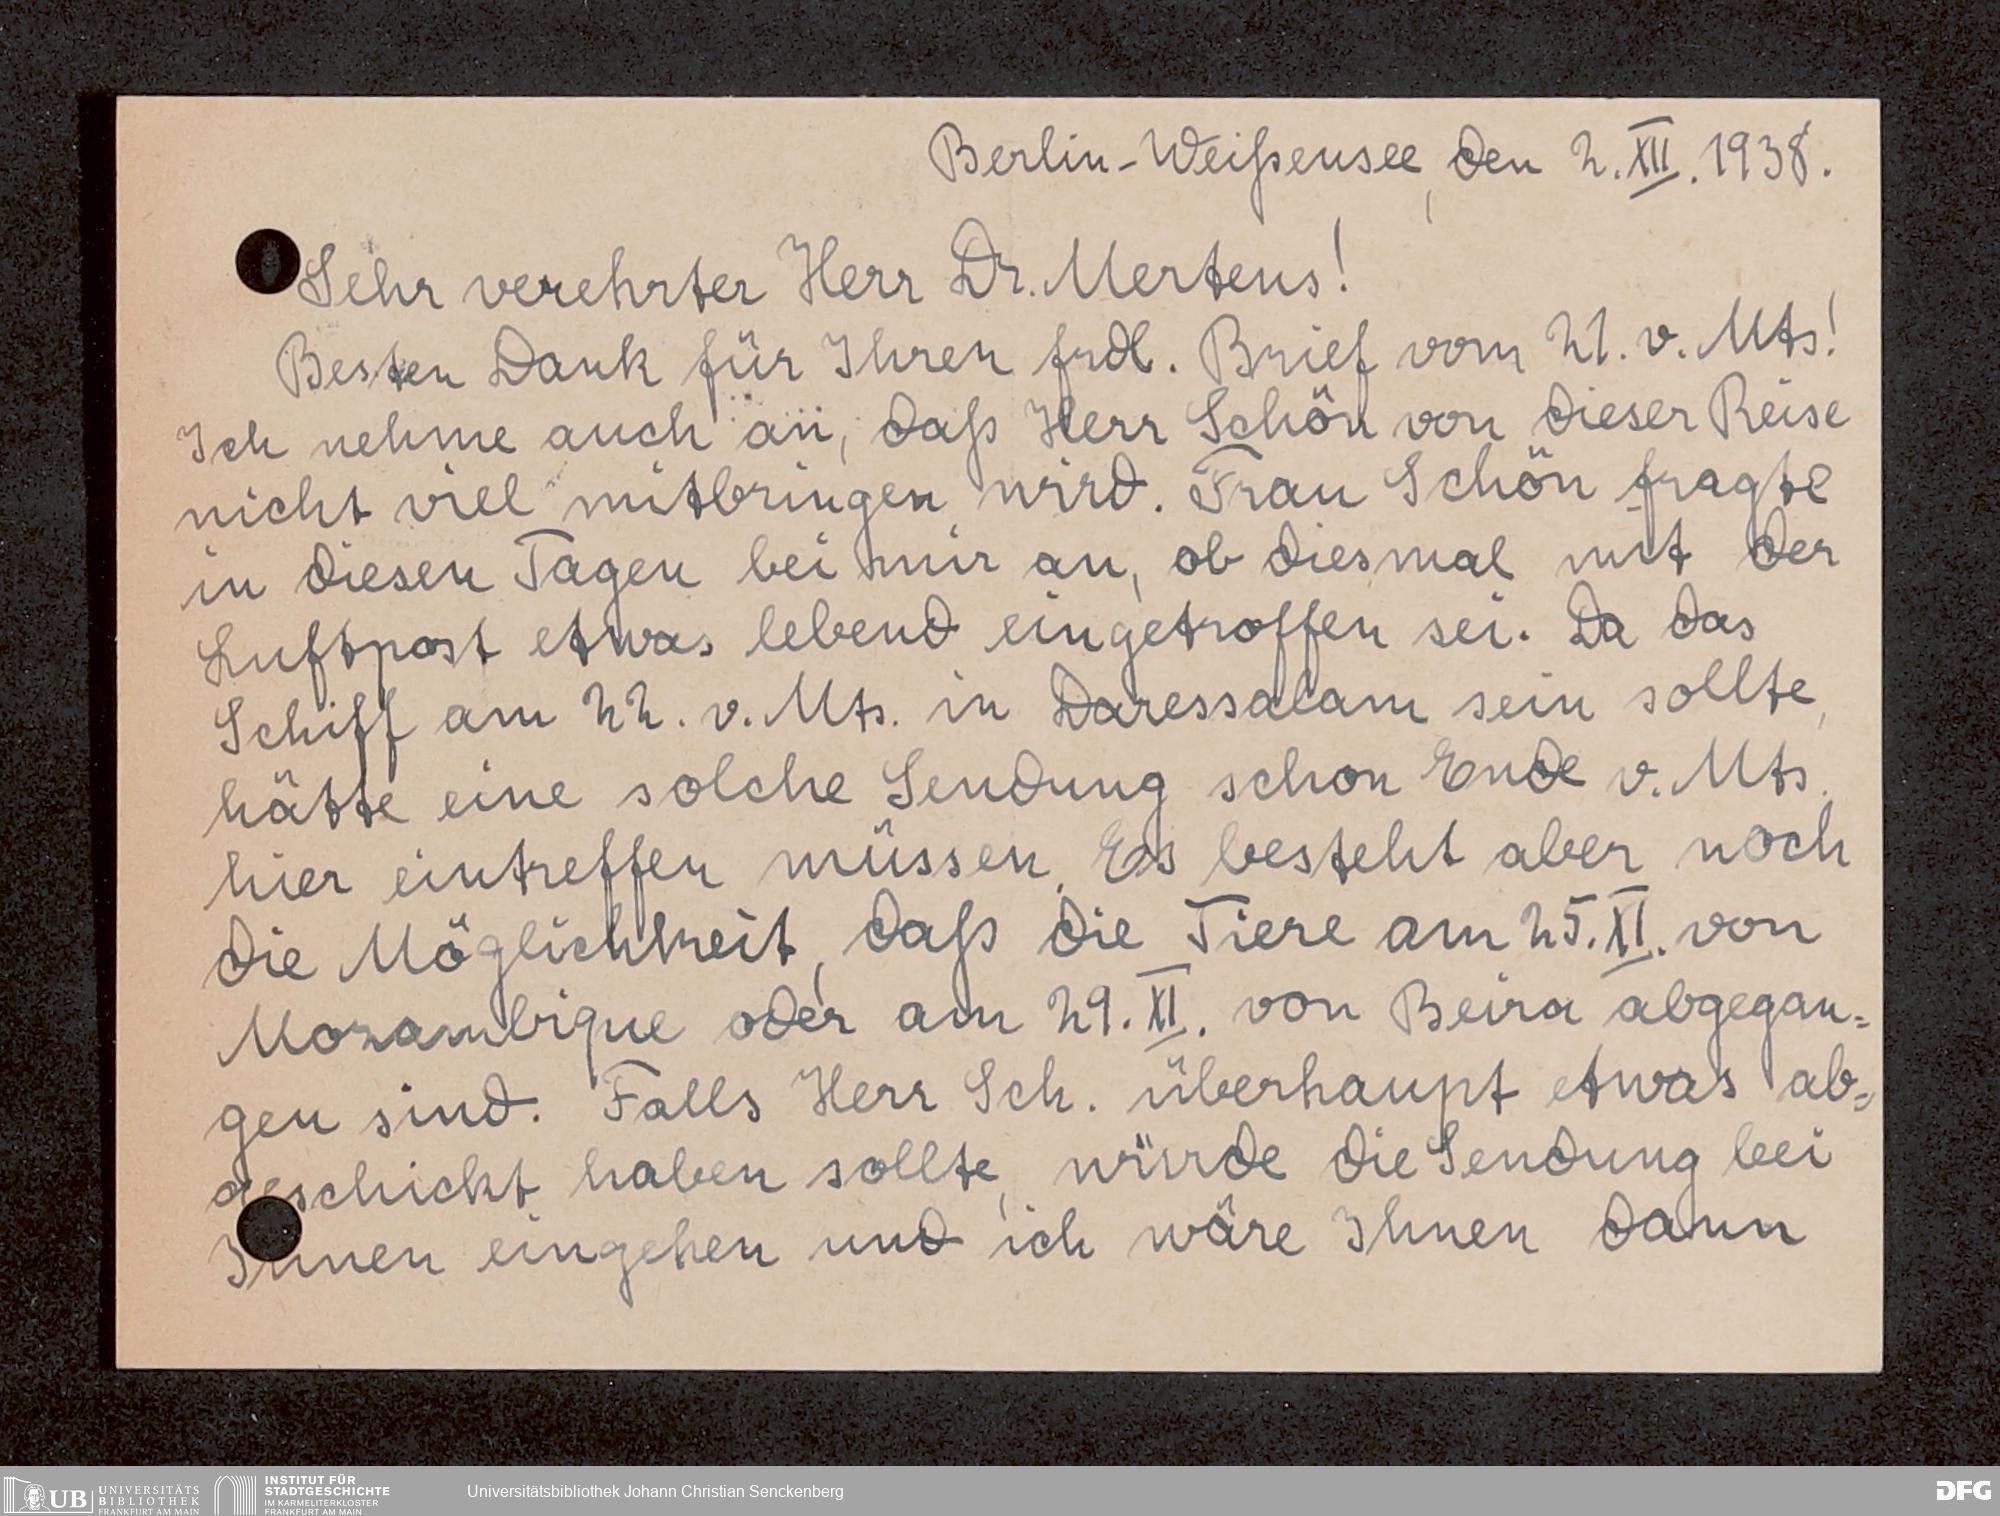 Berlin-Weißensee, den 2. XII. 1938.
Sehr verehrter Herr Dr. Mertens!
Besten Dank für Ihren frdl. Brief vom 21. v. Mts!
Ich nehme auch an, daß Herr Schön von dieser Reise
nicht viel mitbringen wird. Frau Schön fragte
in diesen Tagen bei mir an, ob diesmal mit der
Luftpost etwas lebend eingetroffen sei. Da das
Schiff am 22. v. Mts. in Daressalam sein sollte,
hätte eine solche Sendung schon Ende v. Mts.
hier eintreffen müssen. Es besteht aber noch
die Möglichkeit, daß die Tiere am 25. XI. von
Mozambique oder am 29. XI. von Beira abgegan=
gen sind. Falls Herr Sch. überhaupt etwas ab=
geschickt haben sollte, würde die Sendung bei
Ihnen eingehen und ich wäre Ihnen dann
UB UNIVERSITÄTS
BIBLIOTHEK
FRANKFURT AM MAIN
INSTITUT FÜR
STADTGESCHICHTE
IM KARMELITERKLOSTER
FRANKFURT AM MAIN
Universitätsbibliothek Johann Christian Senckenberg
DFG